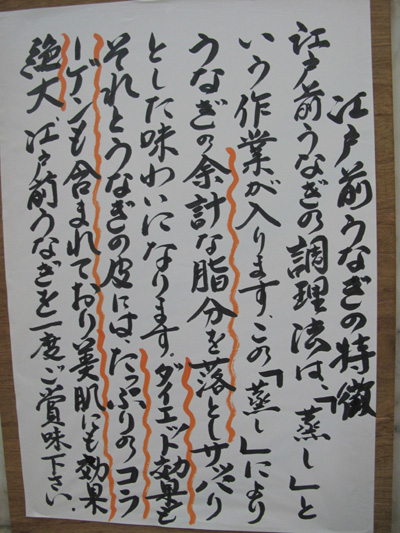 江戸前うなぎの特徴
江戸前うなぎの調理法は、「蒸し」と
いう作業が入ります。この「蒸し」により
うなぎの余計な脂分を落としサッパリ
とした味わいになります。ダイエット効果も
それとうなぎの皮には、たっぷりのコラ
ーゲンも含まれており美肌にも効果
絶大、江戸前うなぎを一度ご賞味下さい。